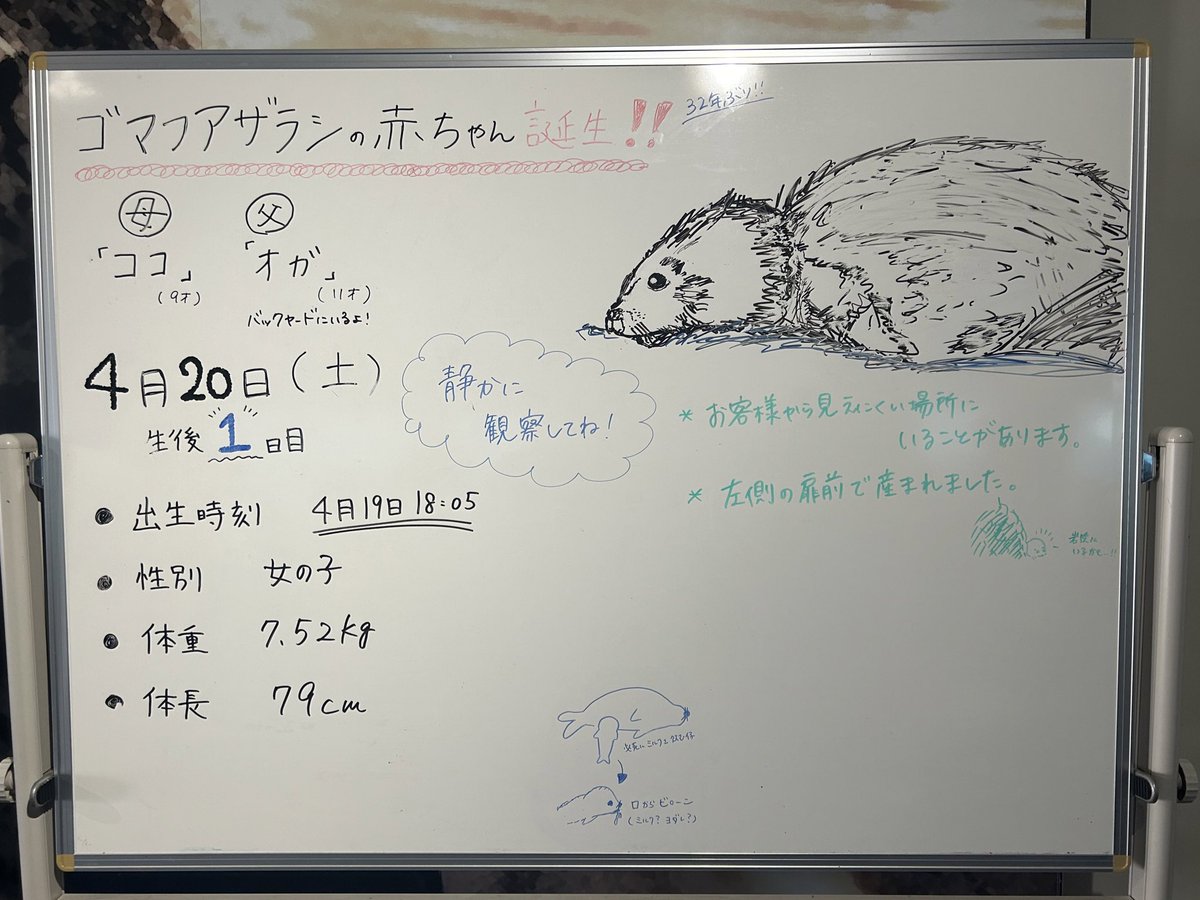 ゴマフアザラシの赤ちゃん誕生!!
32年ぶり!!
母 父
「ココ」 「オガ」
(9才) (11才)
バックヤードにいるよ!
4月20日(土)
生後1日目
静かに
観察してね!
• 出生時刻 4月19日 18:05
• 性別 女の子
• 体重 7.52kg
• 体長 79cm
* お客様から見えにくい場所に
いることがあります。
* 左側の扉前で産まれました。
岩陰に
いるかも…!!
必死にミルクを飲む仔
口からビローン
(ミルク?ヨダレ?)